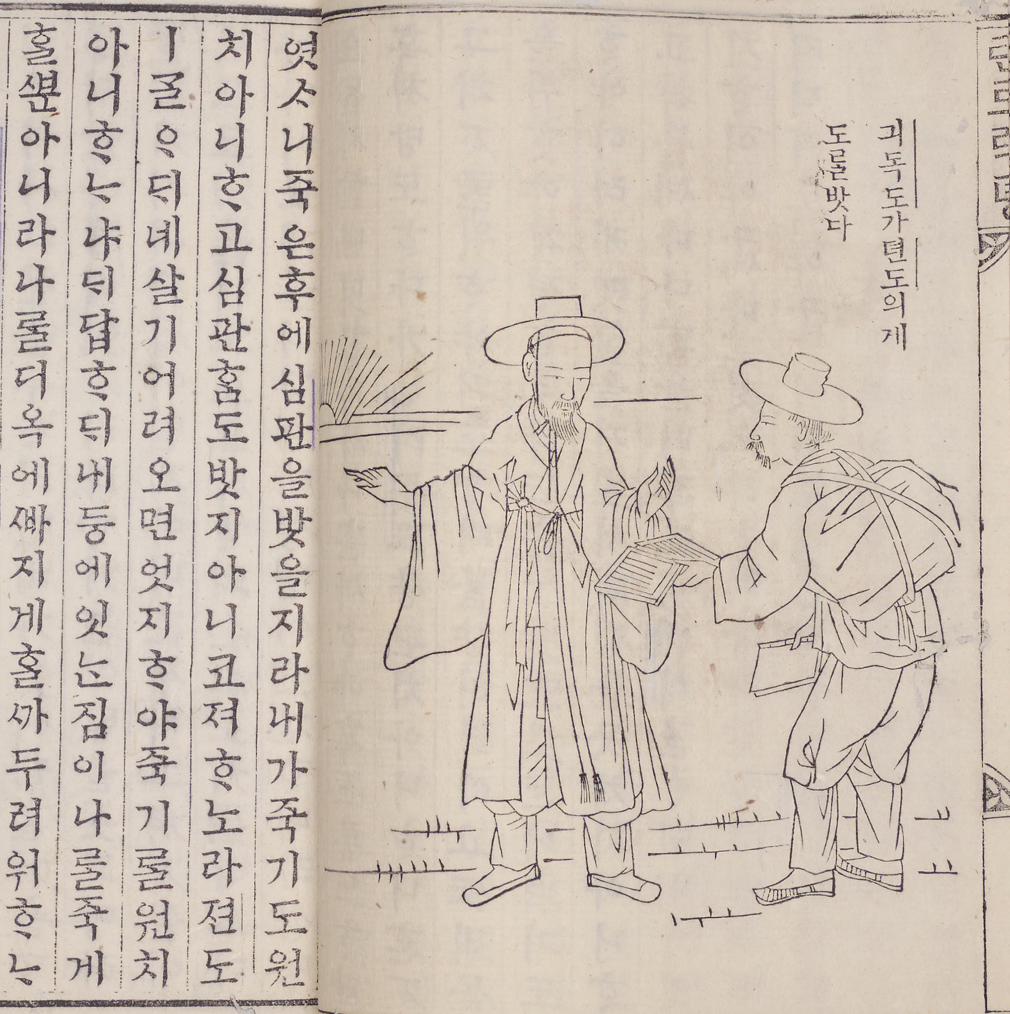 텬로력뎡
긔독도가뎐도의게
도ᄅᆞᆯ밧다
엿ᄉᆞ니죽은후에심판을밧을지라내가죽기도원
치아니ᄒᆞ고심판ᄒᆞᆷ도밧지아니코져ᄒᆞ노라뎐도
ㅣᄀᆞᆯᄋᆞᄃᆡ네살기어려오면엇지ᄒᆞ야죽기ᄅᆞᆯ원치
아니ᄒᆞᄂᆞ냐ᄃᆡ답ᄒᆞᄃᆡ내등에잇ᄂᆞᆫ짐이나ᄅᆞᆯ죽게
ᄒᆞᆯᄲᅮᆫ아니라나ᄅᆞᆯ디옥에ᄲᅡ지게ᄒᆞᆯᄭᅡ두려워ᄒᆞᄂᆞ